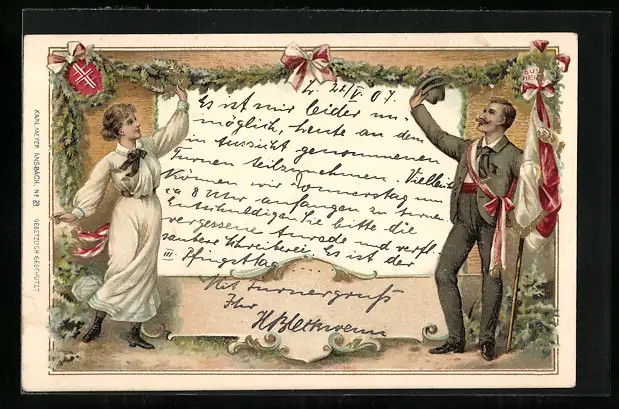 L. 22/V. 07.
Es ist mir leider un-
möglich, heute an dem
in Aussicht genommenen
Turnen teilzunehmen. Vielleicht
können wir Donnerstag um
ca 8 Uhr anfangen zu turnen
Entschuldigen Sie bitte die
vergessene Anrede und
saubere Schreiberei Es ist der
III. Pfingsttag
Mit Turnergruß
Ihr
GUT HEIL
KARL MEYER ANSBACH. Nº 29 GESETZLICH GESCHÜTZT